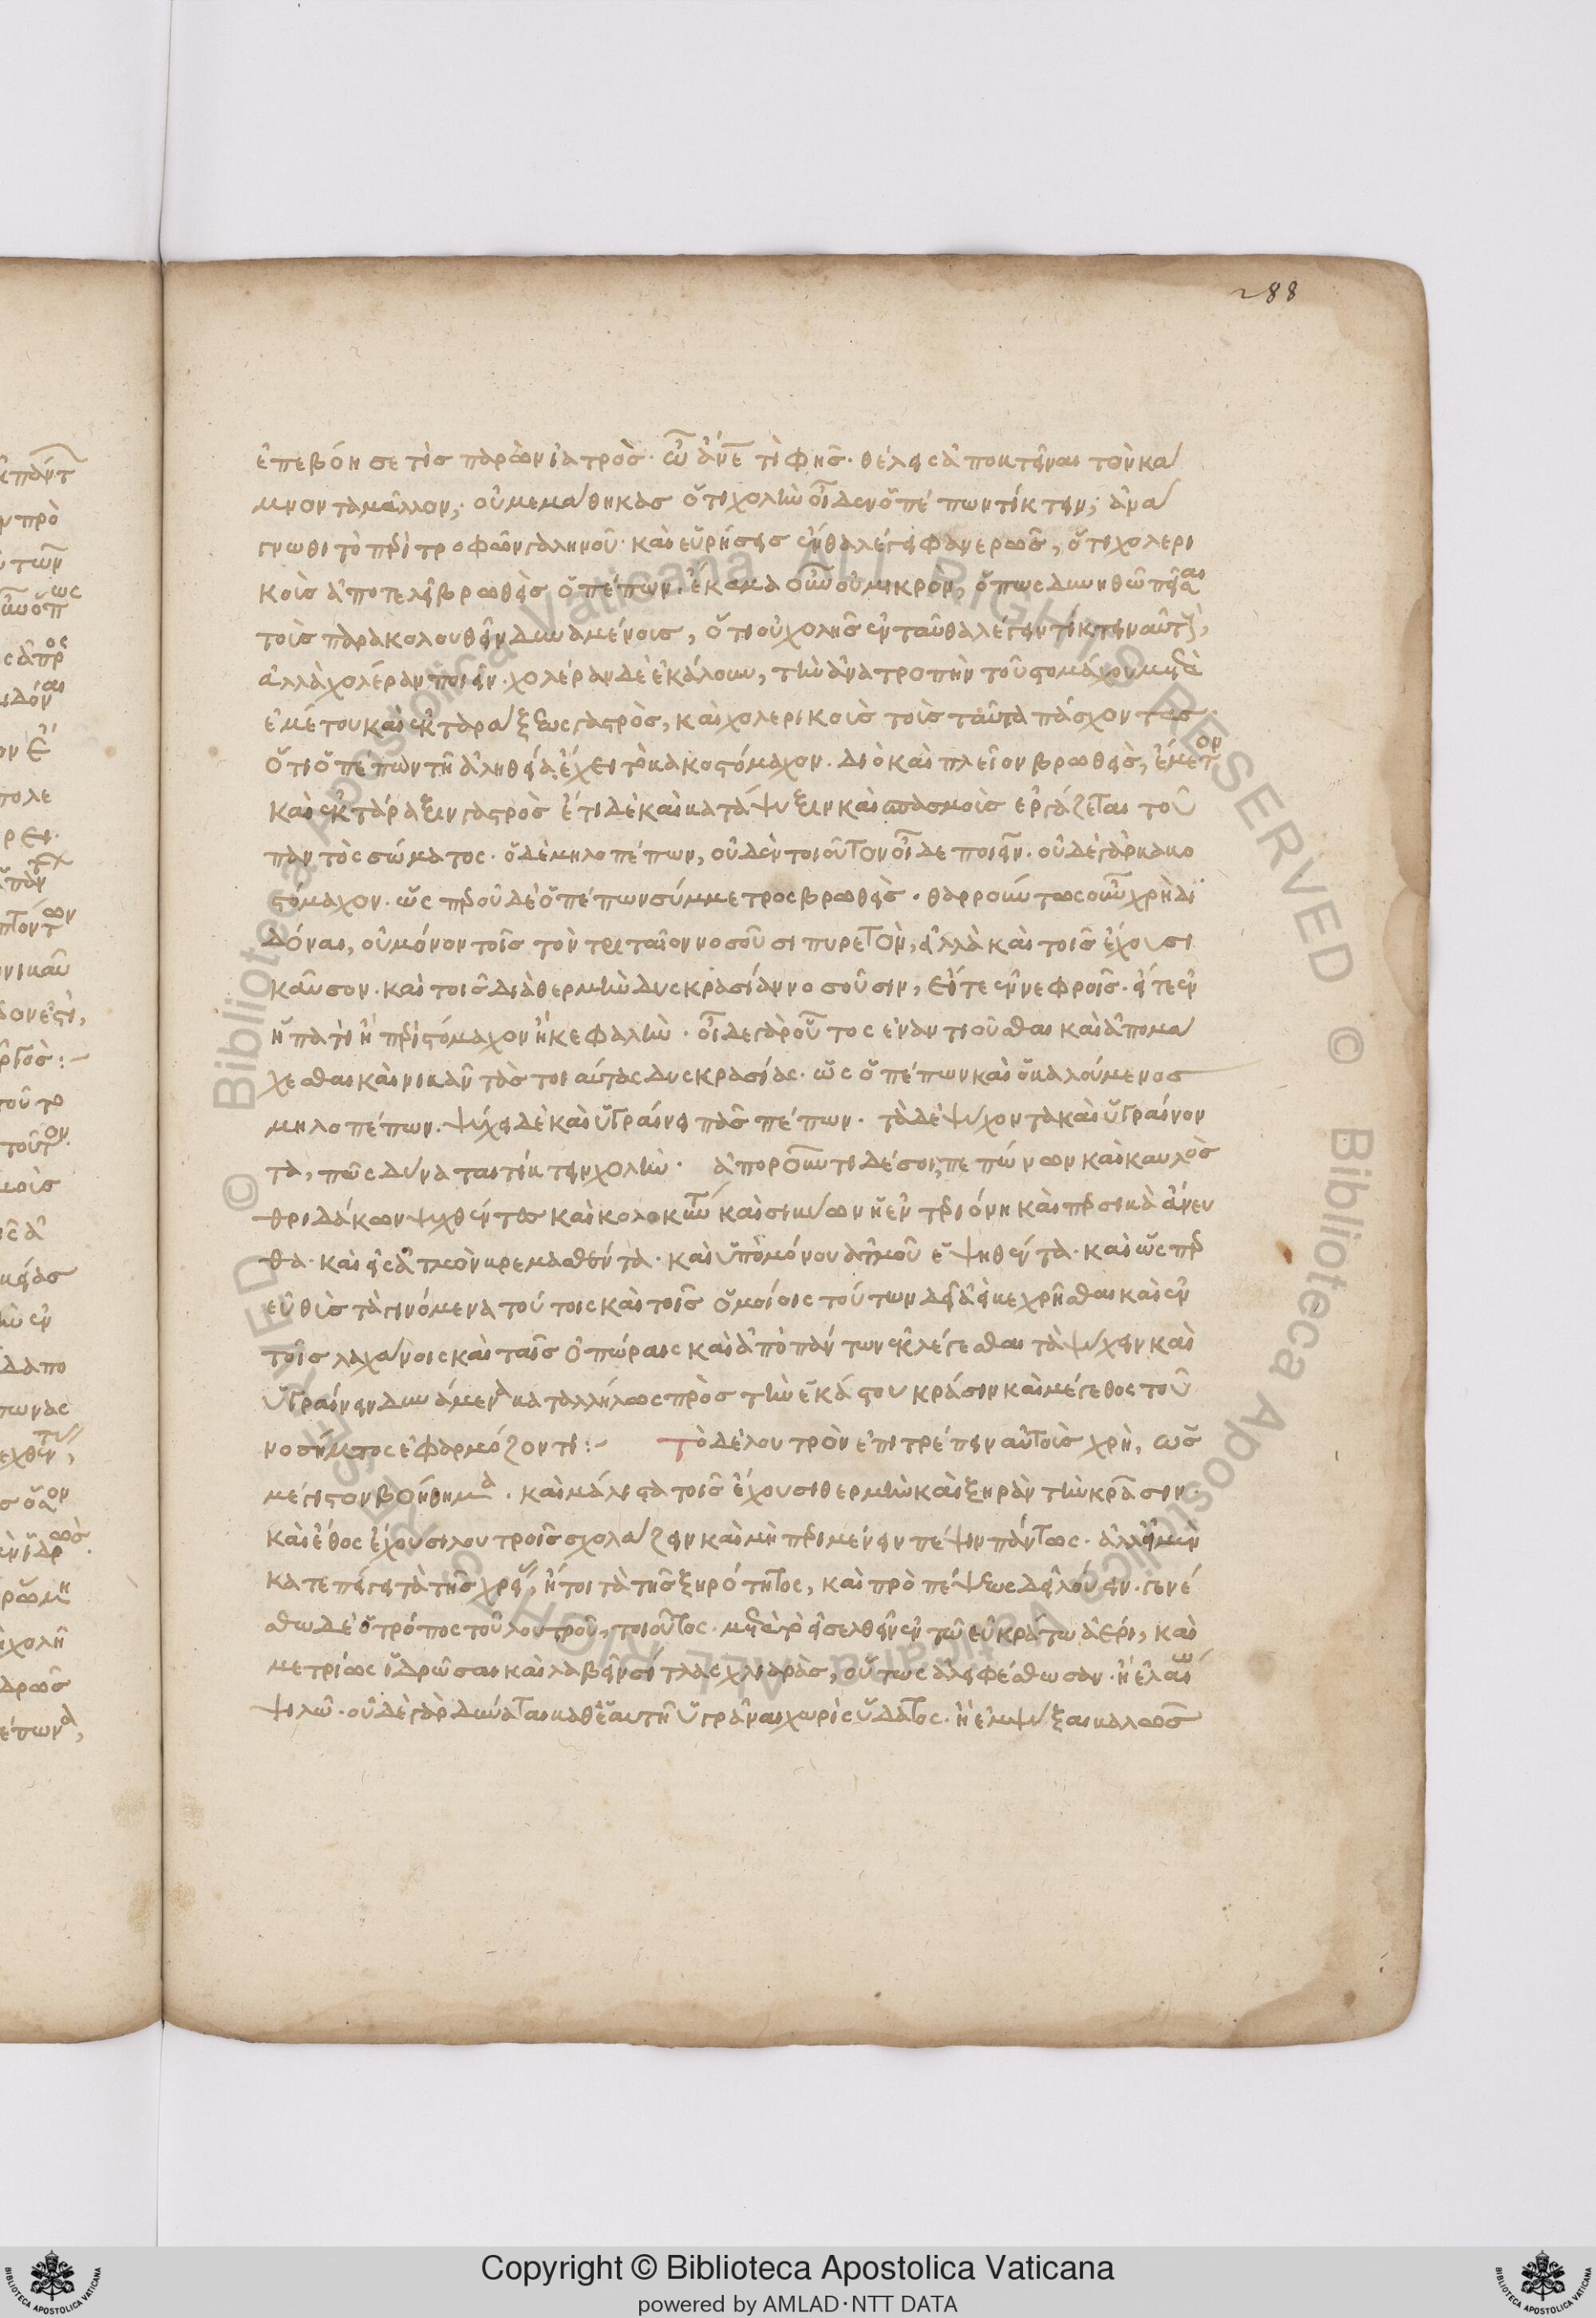 288
ἐπεβόησε τὶς παρὼν ἰατρὸς· ὦ ἄνε τὶ φῆς· θέλεις ἀποκτεῖναι τὸν κά
μνοντα μᾶλλον; οὐ μεμάθηκας ὅτι χολὴν οἶδεν ὁ πέπων τίκτειν; ἀνά
γνωθι τὸ περὶ τροφῶν γαληνοῦ· καὶ εὑρήσεις ἐνθα λέγει φανερῶς, ὅτι χολερι
κοὺς ἀποτελεῖ βρωθεὶς ὁ πέπων· ἔκαμα οὖν οὐ μικρὸν, ὅπως δυνηθῶ πεῖσαι
τοῖς παρακολουθεῖν δυναμένοις, ὅτι οὐ χολῆς ἐνταῦθα λέγειν τίκτειν αὐτὸν,
ἀλλὰ χολέραν ποιεῖν· χολέραν δὲ ἐκάλουν, τὴν ἀνατροπὴν τοῦ στομάχου μετὰ
ἐμέτου καὶ ἐκταράξεως γαστρὸς, καὶ χολερικοὺς τοὺς ταῦτα πάσχοντας·
ὅτι ὁ πέπων τῆ ἀληθεία ἔχει τὸ κακοστόμαχον· διὸ καὶ πλεῖον βρωθεὶς, ἔμετον
καὶ ἐκτάραξιν γαστρὸς ἔτι δὲ καὶ κατάψυξιν καὶ σπασμοὺς ἐργάζεται τοῦ
παντὸς σώματος· ὁ δὲ μηλοπέπων, οὐδὲν τοιοῦτον οἶδε ποιεῖν· οὐδὲ γὰρ κακο
στόμαχον· ὥσπερ οὐδὲ ὁ πέπων σύμμετρος βρωθεὶς· θαρρούντως οὖν χρὴ δι
δόναι, οὐ μόνον τοῖς τὸν τριταῖον νοσοῦσι πυρετὸν, ἀλλὰ καὶ τοῖς ἔχουσι
καῦσον· καὶ τοῖς διὰ θερμὴν δυσκρασίαν νοσοῦσιν, εἴτε ἐν νεφροῖς· εἴτε ἐν
ἥπατι ἢ περὶ στόμαχον ἢ κεφαλὴν· οἶδε γὰρ οὗτος ἐναντιοῦσθαι καὶ ἀπομά
χεσθαι καὶ νικᾶν τὰς τοιαύτας δυσκρασίας· ὡς ὁ πέπων καὶ ὁ καλούμενος
μηλοπέπων· ψύχει δὲ καὶ ὑγραίνει πᾶς πέπων· τὰ δὲ ψύχοντα καὶ ὑγραίνον
τα, πῶς δύναται τίκτειν χολὴν· ἀποροῦντι δέ σοι, πεπώνων καὶ καυλὸς
θριδάκων ψυχθέντος καὶ κολοκυντ καὶ σικύων ἢ ἐντεριόνη καὶ περσικὰ ἄνευ
θα· καὶ εἰς ἀτμὸν κρεμασθέντα· καὶ ὑπὸ μόνου ἀτμοῦ ἑψηθέντα· καὶ ὥσπερ
εὐθὺς τὰ γινόμενα τούτοις καὶ τοῖς ὁμοίοις τούτων δεῖ ἀεὶ κεχρῆσθαι καὶ ἐν
τοῖς λαχάνοις καὶ ταῖς ὀπώραις καὶ ἀπὸ πάντων ἐκλέγεσθαι τὰ ψύχειν καὶ
ὑγραίνειν δυνάμενα καταλλήλως πρὸς τὴν ἑκάστου κρᾶσιν καὶ μέγεθος τοῦ
νοσήματος ἐφαρμόζοντι:~ Τὸ δὲ λουτρὸν ἐπιτρέπειν αὐτοῖς χρὴ, ὡς
μέγιστον βοήθημα· καὶ μάλιστα τοῖς ἔχουσι θερμὴν καὶ ξηρὰν τὴν κρᾶσιν·
καὶ ἔθος ἔχουσι λουτροῖς σχολάζειν καὶ μὴ περιμένειν πέψιν πάντως· ἀλλ' εἰ μὴ
κατεπείγει τὰ τῆς χρείας, ἤτοι τὰ τῆς ξηρότητος, καὶ πρὸ πέψεως δεῖ λούειν· γενέ
σθω δὲ ὁ τρόπος τοῦ λουτροῦ, τοιοῦτος· μετὰ τὸ εἰσελθεῖν ἐν τῶ εὐκράτω ἀέρι, καὶ
μετρίως ἱδρῶσαι καὶ λαβεῖν σίτλας χλιαρὰς, οὕτως ἀλειφέσθωσαν· ἢ ἐλαίω
ψιλῶ· οὐδὲ γὰρ δύναται καθ' ἑαυτὴν ὑγρᾶναι χωρὶς ὕδατος· ἢ ἐμψύξαι καλῶς
Copyright © Biblioteca Apostolica Vaticana
powered by AMLAD·NTT DATA